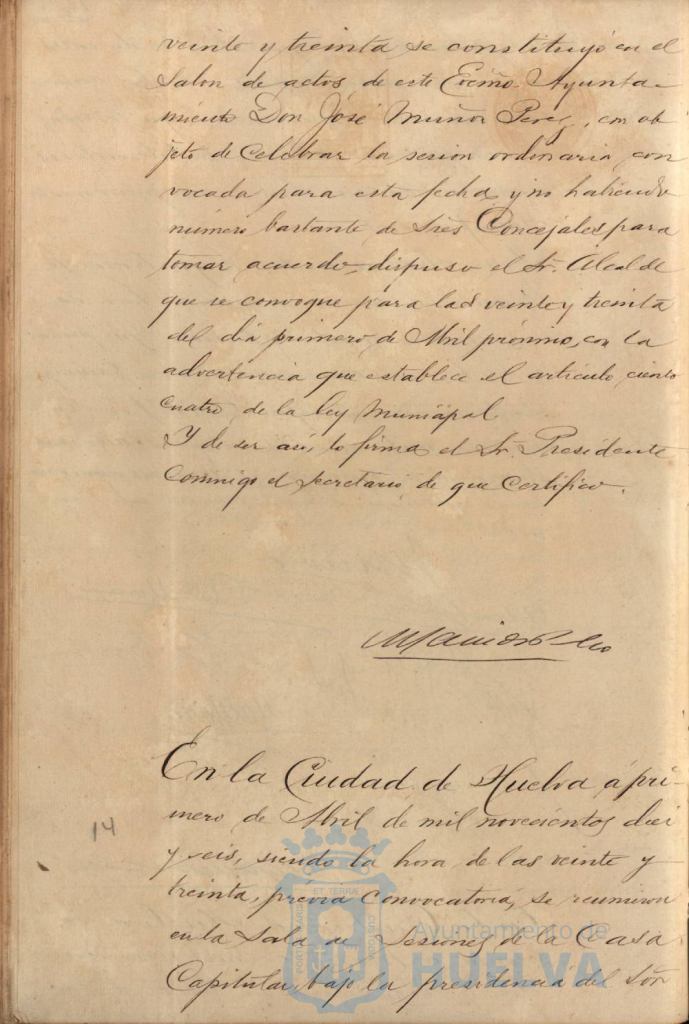 veinte y treinta se constituyó en el
Salon de actos de este Excmo. Ayunta-
miento Don José Muñoz Perez, con ob
jeto de celebrar la sesion ordinaria con
vocada para esta fecha y no habiendo
número bastante de Sres Concejales para
tomar acuerdo, dispuso el Sr. Alcalde
que se convoque para las veinte y treinta
del dia primero de Abril próximo, con la
advertencia que establece el artículo ciento
cuatro de la ley Municipal.
Y de ser así, lo firma el Sr. Presidente
conmigo el Secretario de que Certifico.
En la Ciudad de Huelva á pri-
mero de Abril de mil novecientos diez
14
y seis, siendo la hora de las veinte y
treinta, prévia convocatoria, se reunieron
en la Sala de Sesiones de la Casa
Capitular, bajo la presidencia del Señ
PORTUS MARIS ET TERRÆ CUSTODIA
Ayuntamiento de
HUELVA